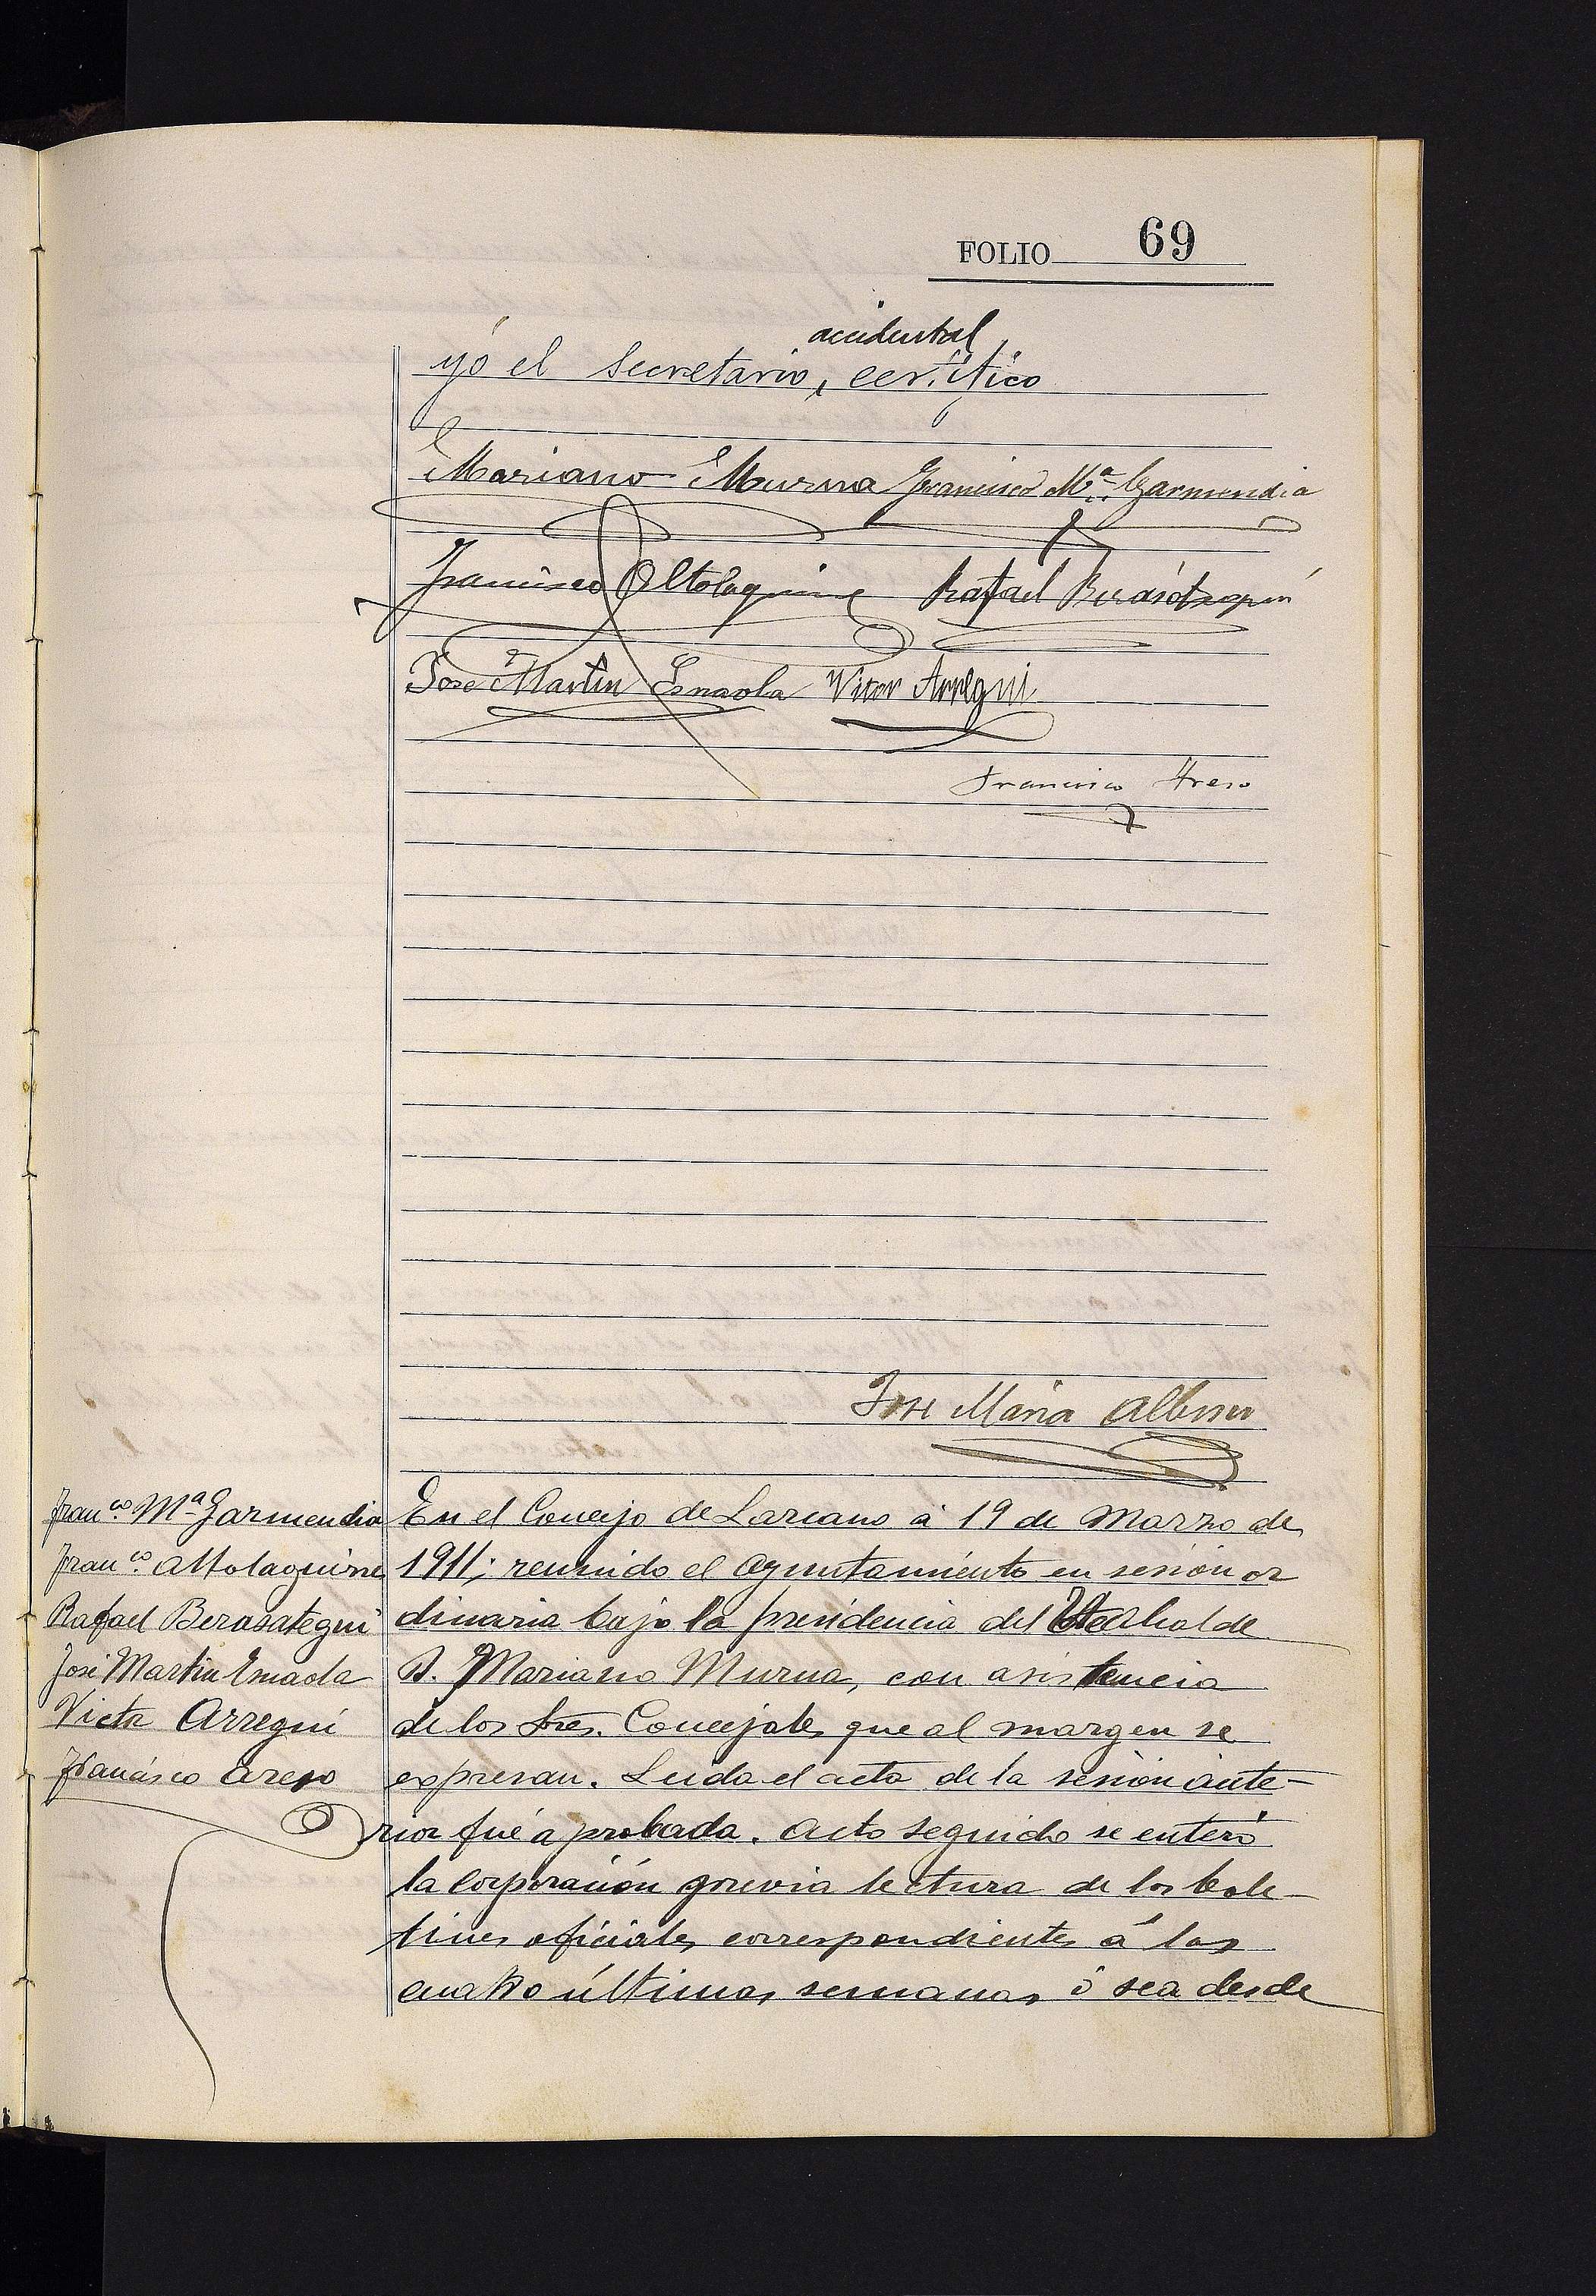 FOLIO 69
accidental
yó el Secretario, certifico
Mariano Murua Francisco Mª Garmendia
Francisco Altolaguirre Rafael Berasategui
José Martin Esnaola Vitor Arregui
Francisco Areso
José Maria
Franco. Mª Garmendia
Franco. Altolaguirre
Rafael Berasategui
José Martin Esnaola
Victor Arregui
Francisco Areso
En el Concejo de Lazcano á 19 de Marzo de
1911; reunido el Ayuntamiento en sesión or
dinaria bajo la presidencia del Alcalde
D. Mariano Murua, con asistencia
de los Sres. Concejales que al margen se
expresan. Leida el acta de la sesión ante-
rior fué aprobada. Acto seguido se enteró
la Corporación previa lectura de los bole-
tines oficiales correspondientes á las
cuatro últimas semanas ó sea desde